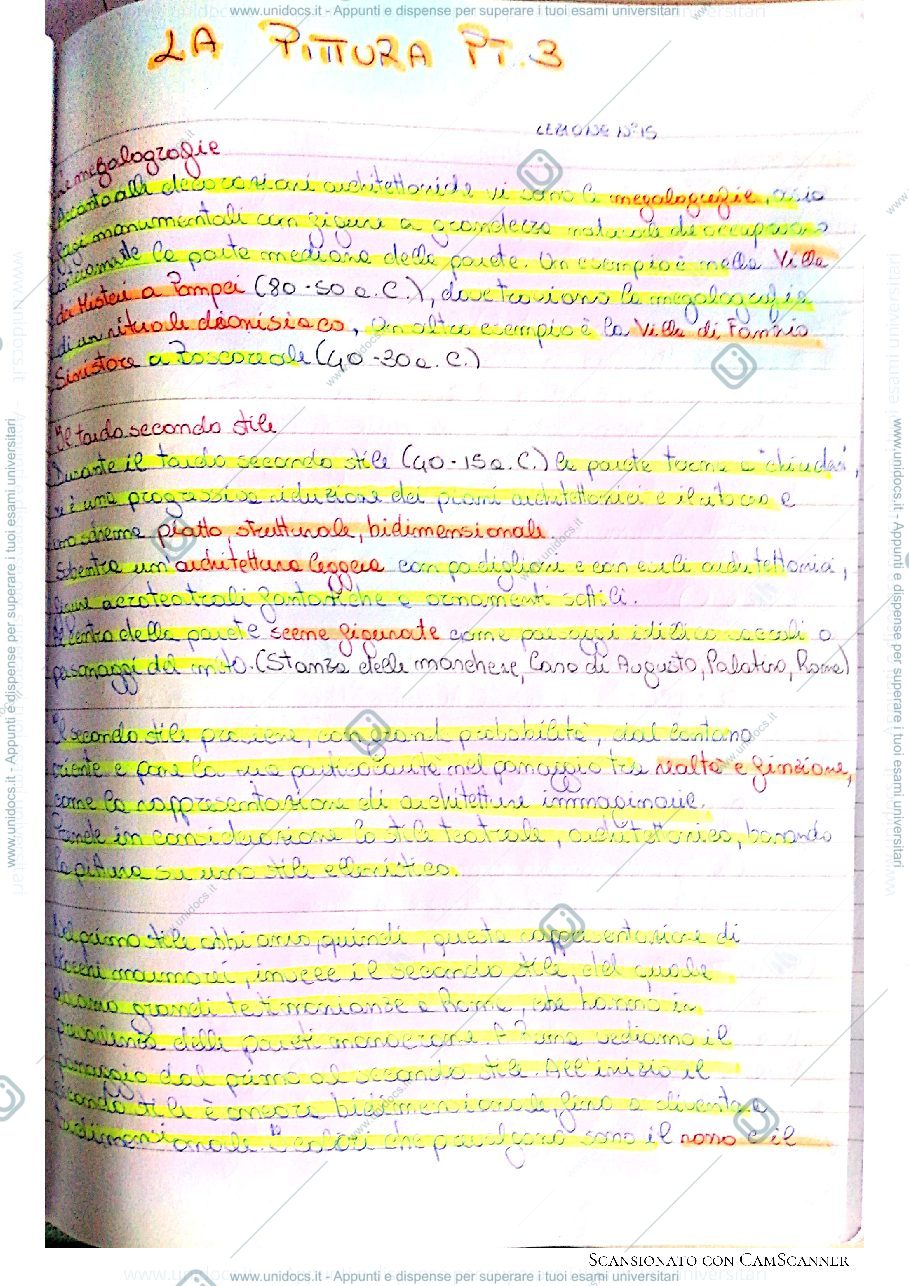 www.unidocs.it - Appunti e dispense per superare i tuoi esami universitari
LA PITTURA PT.3
LEZIONE N°15
megalografie
Accanto alle decorazioni architettoniche vi sono le megalografie, ossia
fregi monumentali con figure a grandezza naturale che occupavano
la parte mediana della parete. Un esempio è nella Villa
dei Misteri a Pompei (80-50 a.C.), dove troviamo la megalografia
di un rituale dionisiaco, un altro esempio è la Villa di Fannio
Sinistore a Boscoreale (40-30 a.C.)
Il tardo secondo stile
Durante il tardo secondo stile (40-15 a.C.) la parete torna a "chiudersi",
vi è una progressiva riduzione dei piani architettonici e il ritorno a
uno schema piatto strutturale, bidimensionale
Subentra un'architettura leggera con padiglioni e con esili architettonici,
figure acroteatrali fantastiche e ornamenti sottili.
Al centro della parete scene figurate come paesaggi idillico sacrali o
personaggi del mito. (Stanza delle maschere, Casa di Augusto, Palatino, Roma)
Il secondo stile proviene, con grand probabilità, dal lontano
oriente e pone la sua particolarità nel passaggio tra realtà e finzione,
come la rappresentazione di architetture immaginarie.
Prende in considerazione lo stile teatrale, architettonico, basando
la pittura su uno stile ellenistico.
Nel primo stile abbiamo, quindi, questa rappresentazione di
marmorei, invece il secondo stile, del quale
abbiamo grandi testimonianze a Roma, che hanno in
prevalenza delle pareti monocrome. A Roma vediamo il
passaggio dal primo al secondo stile. All'inizio il
secondo stile è ancora bidimensionale, fino a diventare
tridimensionale. I colori che prevalgono sono il rosso e il
SCANSIONATO CON CAMSCANNER
www.unidocs.it - Appunti e dispense per superare i tuoi esami universitari